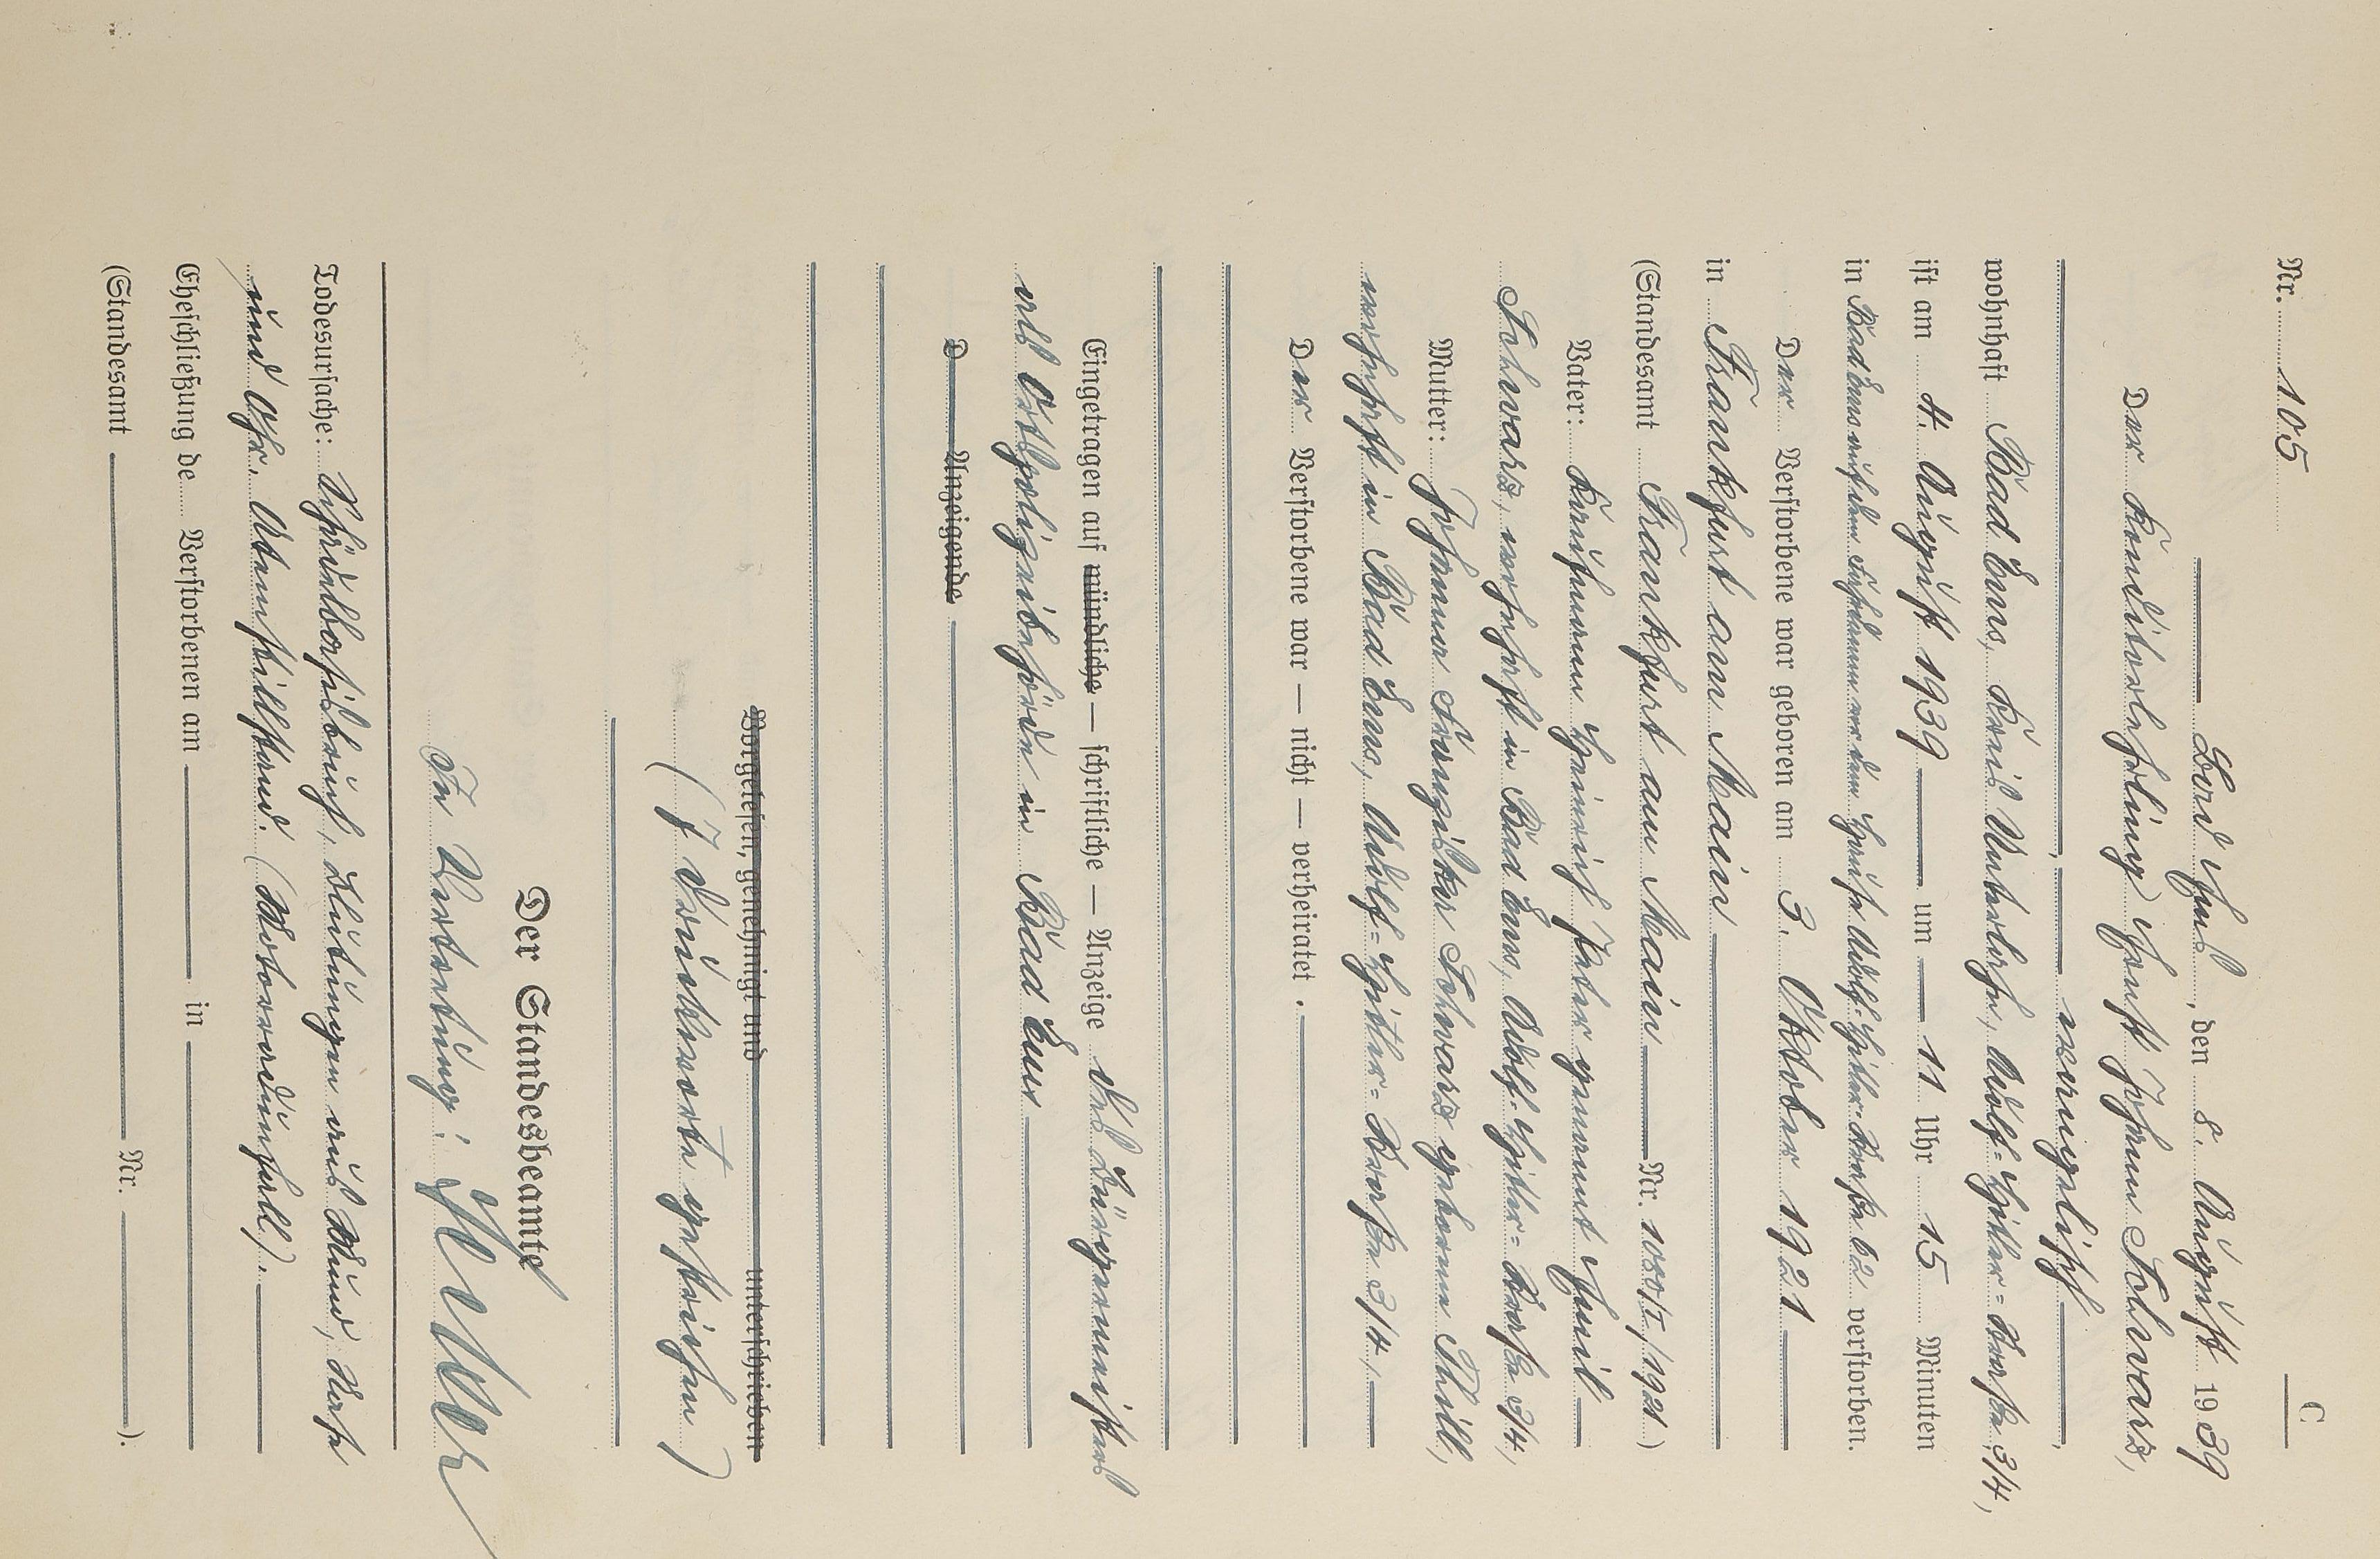 C
Nr. 105
Bad Ems, den 8. August 1939
Der Konditorlehrling Horst Johann Schwarz,
evangelisch,
wohnhaft Bad Ems, Kreis Unterlahn, Adolf-Hitler-Straße 3/4,
ist am 4. August 1939 um 11 Uhr 15 Minuten
in Bad Ems auf dem Fahrdamm vor dem Hause Adolf-Hitler-Straße 62 verstorben.
Der Verstorbene war geboren am 3. Oktober 1921
in Frankfurt am Main
(Standesamt Frankfurt am Main Nr. 1080/I/1921)
Vater: Kaufmann Heinrich Peter genannt Emil
Schwarz, wohnhaft in Bad Ems, Adolf-Hitler-Straße 3/4,
Mutter: Johanna Franziska Schwarz geborene Schill,
wohnhaft in Bad Ems, Adolf-Hitler-Straße 3/4,
Der Verstorbene war — nicht — verheiratet.
Eingetragen auf mündliche — schriftliche — Anzeige des Bürgermeisters
als Ortspolizeibehörde in Bad Ems
D Anzeigende
Vorgelesen, genehmigt und unterschrieben
(7 Druckworte gestrichen)
Der Standesbeamte
In Vertretung:
Todesursache: Schädelbasisbruch, Blutungen aus Mund, Nase
und Ohr. Atemstillstand. (Motorradunfall).
Eheschließung de Verstorbenen am in
(Standesamt Nr. ).